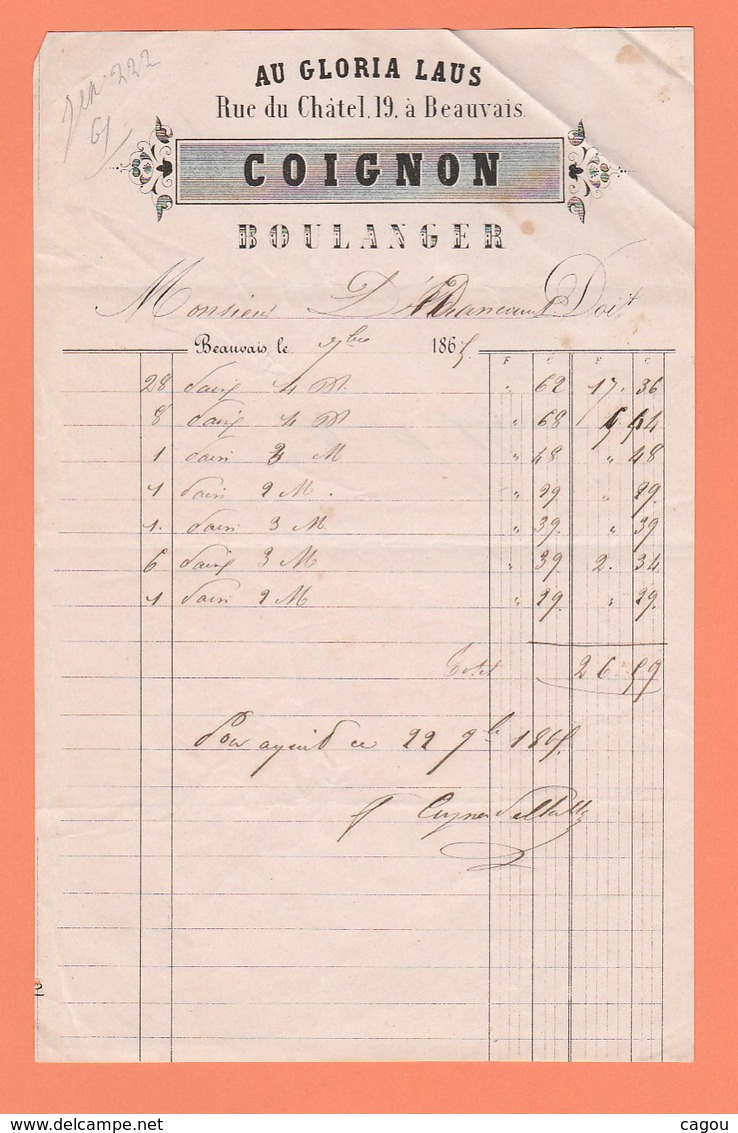 222
AU GLORIA LAUS
Rue du Châtel, 19, à Beauvais.
COIGNON
BOULANGER
Monsieur Doit
Beauvais, le 9bre 1865
F C F C
28 Pains 4 " 62 17. 36
8 Pains 4 " 68 5 44
1 Pain M " 48 " 48
1 Pain 2 M. " 29 " 29.
1. Pain 3 M " 39. " 39
6 Pains 3 M " 39 2. 34
1 Pain 2 M " 29. " 29.
Total 26. 59
Pour acquit ce 22 9bre 1865.
www.delcampe.net
cagou